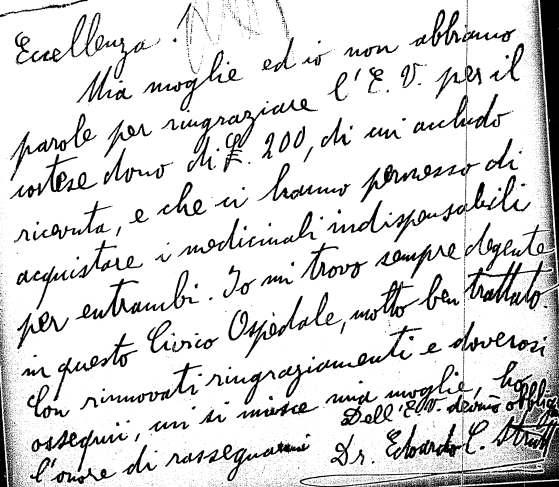 Eccellenza.
Mia moglie ed io non abbiamo
parole per ringraziare l'E. V. per il
cortese dono di £. 200, di cui accludo
ricevuta, e che ci hanno permesso di
acquistare i medicinali indispensabili
per entrambi. Io mi trovo sempre degente
in questo Civico Ospedale, molto ben trattato.
Con rinnovati ringraziamenti e doverosi
ossequii, cui si unisce mia moglie, ho
l'onore di rassegnarmi
Dell'E. V. devmo
Dr. Edoardo C.